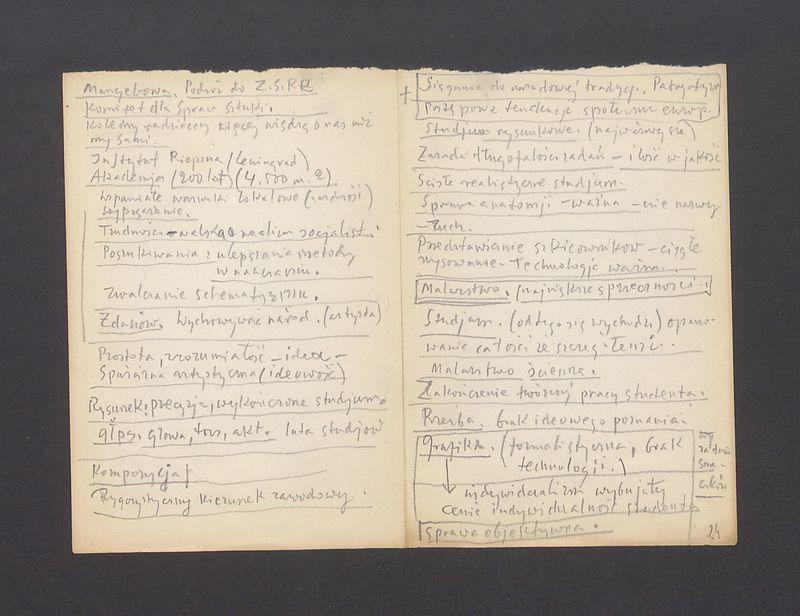 Mangelowa. Podróż do Z.S.R.R
Komitet dla Spraw Sztuki.
Koledzy radzieccy więcej wiedzą o nas niż
my sami.
Instytut Riepina (Leningrad)
Akademia (200 lat) (4.500 m.2)
Wspaniałe warunki lokalowe
wyposażenie.
Trudności – walka o realizm socjalist.
Poszukiwania: ulepszanie metody
w nauczaniu.
Zwalczanie schematyzmu.
Żdanow. Wychowywać naród. (artysta)
Prostota, zrozumiałość – idea –
Spuścizna artystyczna (ideowość)
Rysunek. precyzja, wykończone studjum
gips. głowa, tors, akt. lata studjów
Kompozycja!
Rygorystyczny kierunek zawodowy.
Sięganie do narodowej tradycji. Patryotyzm
Postępowe tendencje społeczne europ.
Studjum rysunkowe. (najważniejsze)
Zasada długofalości zadań – ilość w jakość
Ścisłe realistyczne studjum.
Sprawa anatomji – ważna – nie nazwy
– ruch.
Przedstawianie szkicowników – ciągłe
rysowanie – Technologja ważna.
Malarstwo. (największe sprzeczności!)
Studjum. (od tego się wychodzi) opano-
wanie całości ze szczeg.
Malarstwo ścienne.
Zakończenie twórczej pracy studenta.
Rzeźba. brak ideowego poznania
Grafika. (formalistyczna, brak
technologji.)
indywidualizm wybujały
Cenić indywidualność studenta
Sprawa objektywna.
24